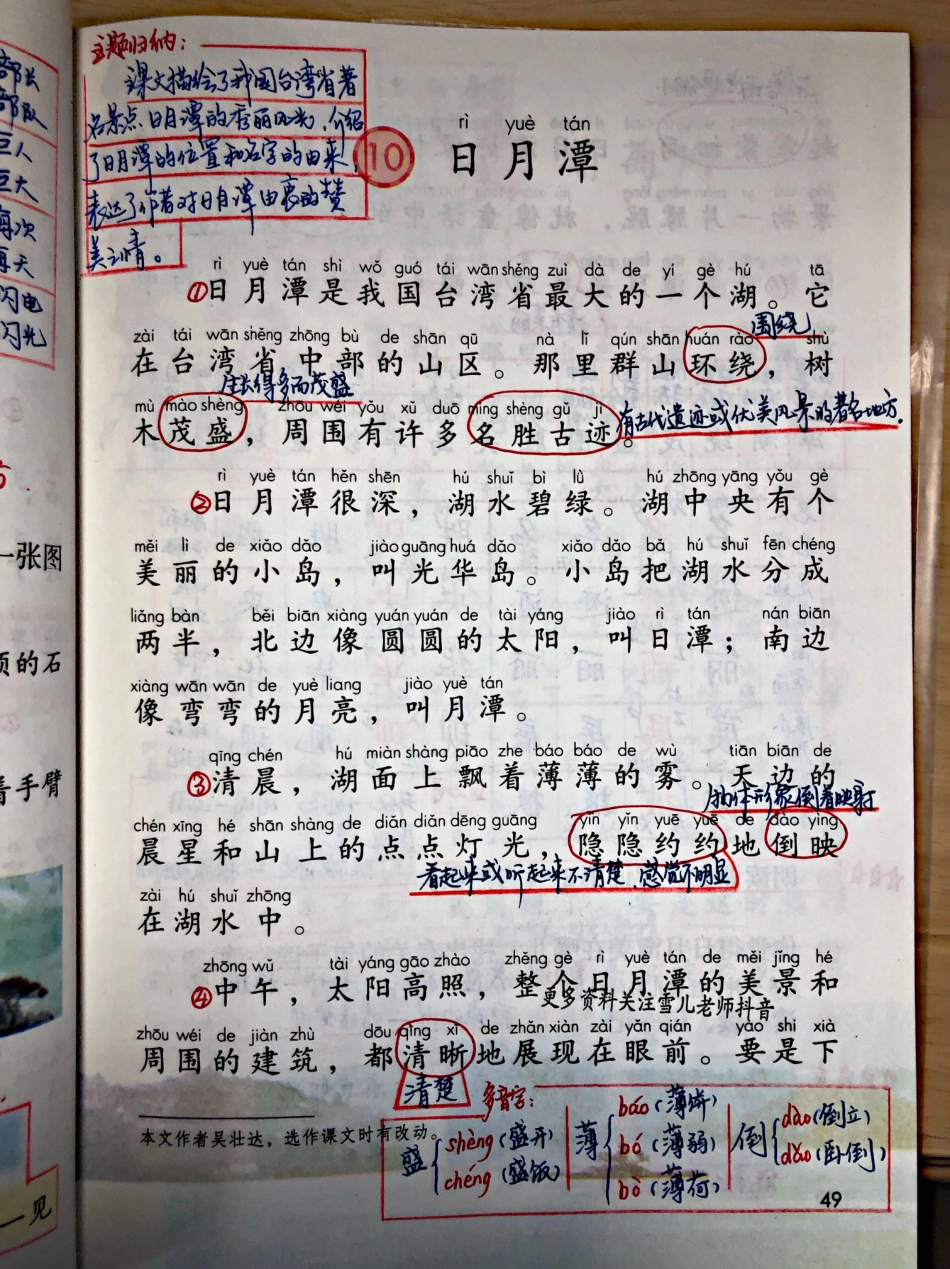 部长
部队
巨人
巨大
再次
再天
闪电
闪光
一张图
的石
着手臂
一见
主题归纳：
课文描绘了我国台湾省著
名景点日月潭的秀丽风光，介绍
了日月潭的位置和名字的由来，
表达了作者对日月潭由衷的赞
美之情。
rì yuè tán
10 日月潭
rì yuè tán shì wǒ guó tái wān shěng zuì dà de yí gè hú tā
①日月潭是我国台湾省最大的一个湖。它
围绕
zài tái wān shěng zhōng bù de shān qū nà lǐ qún shān huán rào shù
在台湾省中部的山区。那里群山环绕，树
生长得多而茂盛
mù mào shèng zhōu wéi yǒu xǔ duō míng shèng gǔ jì
木茂盛，周围有许多名胜古迹。
有古代遗迹或优美风景的著名地方.
rì yuè tán hěn shēn hú shuǐ bì lǜ hú zhōng yāng yǒu gè
②日月潭很深，湖水碧绿。湖中央有个
měi lì de xiǎo dǎo jiào guāng huá dǎo xiǎo dǎo bǎ hú shuǐ fēn chéng
美丽的小岛，叫光华岛。小岛把湖水分成
liǎng bàn běi biān xiàng yuán yuán de tài yáng jiào rì tán nán biān
两半，北边像圆圆的太阳，叫日潭；南边
xiàng wān wān de yuè liang jiào yuè tán
像弯弯的月亮，叫月潭。
qīng chén hú miàn shàng piāo zhe báo báo de wù tiān biān de
③清晨，湖面上飘着薄薄的雾。天边的
物体形象倒着映射
chén xīng hé shān shàng de diǎn diǎn dēng guāng yǐn yǐn yuē yuē de dào yìng
晨星和山上的点点灯光，隐隐约约地倒映
看起来或听起来不清楚，感觉不明显
zài hú shuǐ zhōng
在湖水中。
zhōng wǔ tài yáng gāo zhào zhěng gè rì yuè tán de měi jǐng hé
④中午，太阳高照，整个日月潭的美景和
更多资料关注雪儿老师抖音
zhōu wéi de jiàn zhù dōu qīng xī de zhǎn xiàn zài yǎn qián yào shi xià
周围的建筑，都清晰地展现在眼前。要是下
清楚
本文作者吴壮达，选作课文时有改动。
多音字：
盛 shèng（盛开）
chéng（盛饭）
薄 báo（薄饼）
bó（薄弱）
bò（薄荷）
倒 dào（倒立）
dǎo（卧倒）
49